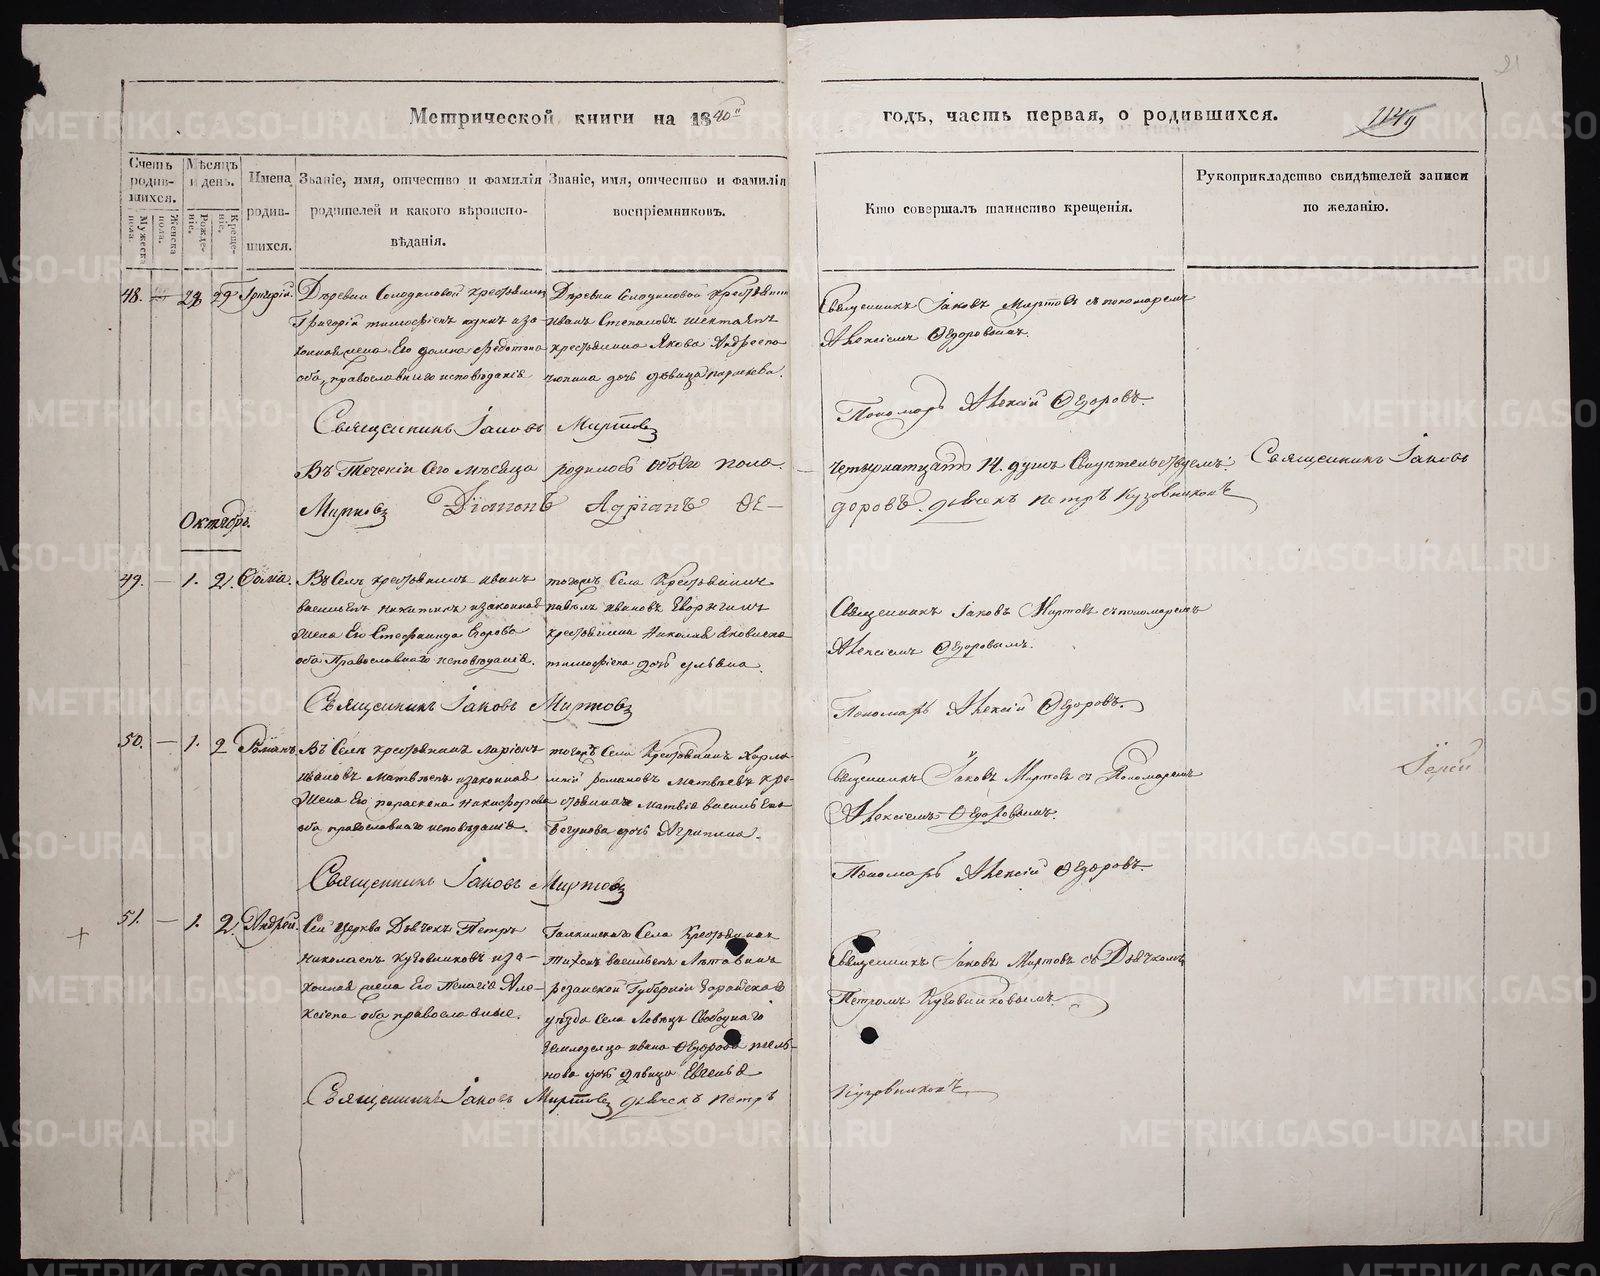 21
Метрической книги на 1840й
годъ, часть первая, о родившихся.
Счетъ родившихся.
Мужеска пола.
Женска пола.
Мѣсяцъ и день.
Рожденіе.
Крещеніе.
Имена родившихся.
Званіе, имя, отчество и фамилія родителей и какого вѣроисповѣданія.
Званіе, имя, отчество и фамилія воспріемниковъ.
Кто совершалъ таинство крещенія.
Рукоприкладство свидѣтелей записи по желанію.
48. 28 29 Григорій.
Деревни Солодиловой крестьянинъ
Григорій тимофѣевъ
жена Его домна федотова
оба, православнаго исповѣданія
Деревни Солодиловой крестьянинъ
иванъ Степановъ
крестьянина Якова Андреева
дочь дѣвица параскева.
Священникъ Іаковъ Миртовъ съ пономаремъ
Алексіемъ Ѳедоровымъ.
Священникъ Іаковъ Миртовъ
Пономарь Алексій Ѳедоровъ.
Въ Теченіи Сего мѣсяца родилось обоего пола.
четырнатцать 14. душъ Свидѣтельствуемъ: Священникъ Іаковъ
Миртовъ Діаконъ Адріанъ Ѳе-
доровъ. дьячекъ Петръ Кузовниковъ
Октябрь.
49. — 1. 2. Ѳома.
Въ Селѣ крестьянинъ иванъ
васильевъ никитинъ изаконная
жена Его Стефанида Егорова
оба Православнаго исповѣданія.
тогожъ Села Крестьянинъ
павелъ ивановъ
крестьянина Николая Яковлева
тимофѣева дочь ульяна.
Священникъ Іаковъ Миртовъ съ пономаремъ
Алексіемъ Ѳедоровымъ.
Священникъ Іаковъ Миртовъ
Пономарь Алексій Ѳедоровъ.
50. — 1. 2 Романъ
Въ Селѣ крестьянинъ ларіонъ
ивановъ Матвѣевъ изаконная
жена Его параскева никифорова
оба православнаго исповѣданія.
тогожъ Села Крестьянинъ Харла-
мпій романовъ матвѣевъ кре-
стьянина Матвія васильева
Бегунова дочь Агрипина.
Священникъ Іаковъ Миртовъ съ Пономаремъ
Алексіемъ Ѳедоровымъ.
Іерей
Священникъ Іаковъ Миртовъ
Пономарь Алексій Ѳедоровъ.
51. — 1. 2. Андрей.
Сей церкви Дьячекъ Петръ
Николаевъ кузовниковъ иза-
конная жена Его Пелагія Але-
ксіева оба православные.
Галкинскаго Села Крестьянинъ
тихонъ васильевъ
резанской Губерніи Зарайскаго
уѣзда Села Ловецъ Свободнаго
землед﻿ельца ивана Ѳедорова
дочь дѣвица Евгенья
Священникъ Іаковъ Миртовъ съ Дьячкомъ
Петромъ Кузовниковымъ.
Священникъ Іаковъ Миртовъ дьячекъ Петръ
Кузовниковъ
METRIKI.GASO-URAL.RU